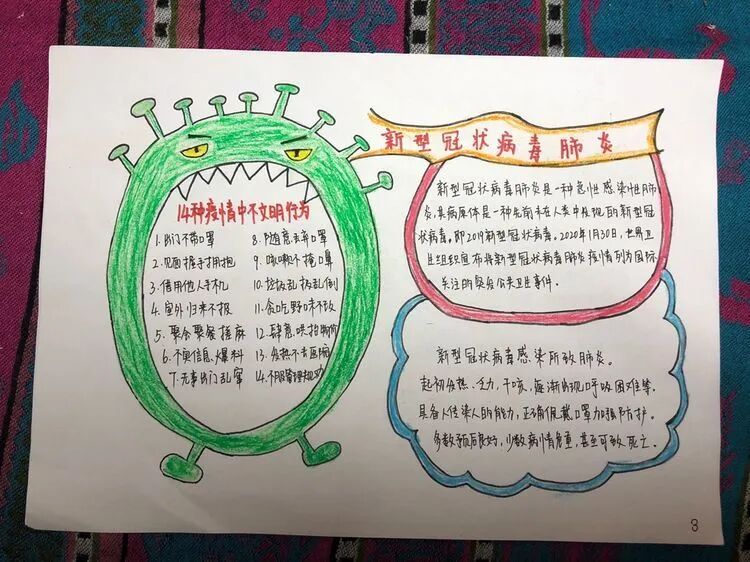 新型冠状病毒肺炎
14种疫情中不文明行为
1.出门不带口罩
2.见面握手打拥抱
3.借用他人手机
4.室外归来不报
5.聚会聚餐搓麻
6.不实信息爆料
7.无事出门乱窜
8.随意丢弃口罩
9.咳嗽不掩嘴
10.垃圾乱扔乱倒
11.贪吃野味不改
12.肆意哄抬物价
13.发热不去医院
14.不服管理规
新型冠状病毒肺炎是一种急性感染性肺
炎,其病原体是一种先前未在人类中发现的新型冠
状病毒。即2019新型冠状病毒。2020年1月30日,世界卫
生组织宣布将新型冠状病毒肺炎疫情列为国际
关注的突发公共卫生事件.
新型冠状病毒感染所致肺炎。
起初发热、乏力,干咳,逐渐出现呼吸困难等.
具备人传染人的能力,正确佩戴口罩加强防护.
多数预后良好,少数病情危重,甚至可致死亡.
3